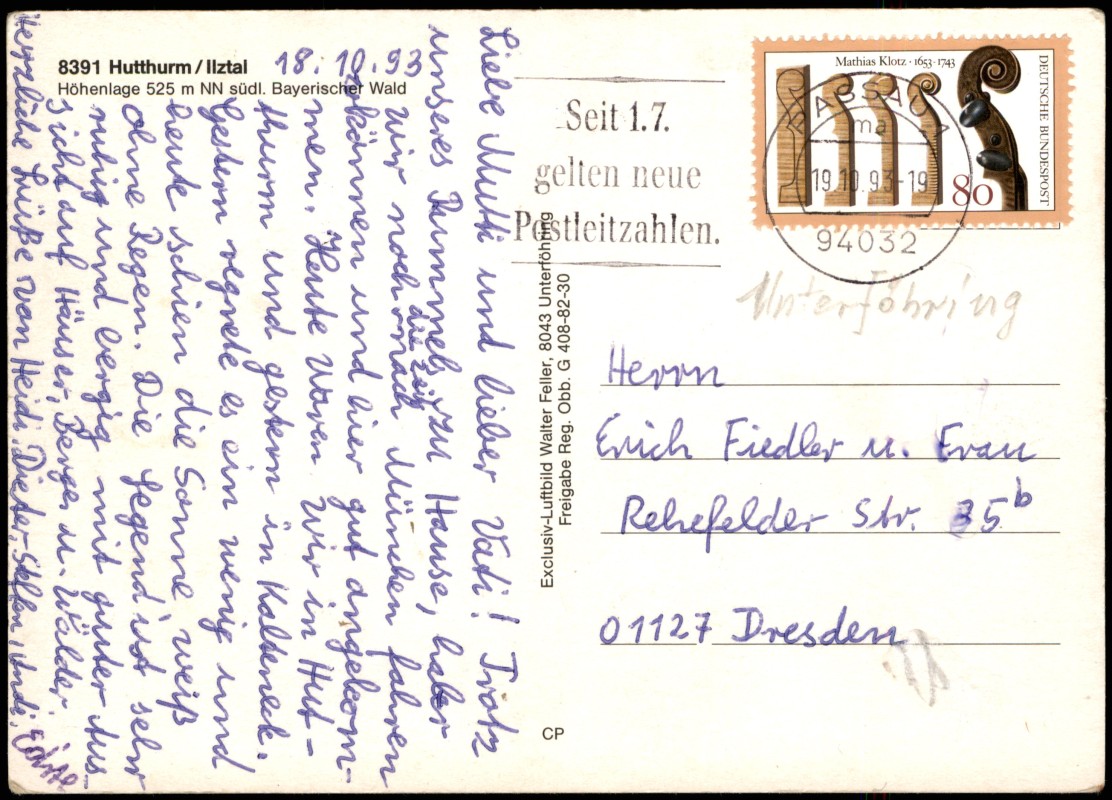 8391 Hutthurm/Ilztal
Höhenlage 525 m NN südl. Bayerischer Wald
18.10.93
Liebe Mutti und lieber Vati! Trotz
unseres Rummels zu Hause, haben
wir noch die Zeit nach München fahren
können und hier gut angekom-
men. Heute Woren. Wir in Hut-
thurm und gestern in Kalteneck.
Gestern regnete es ein wenig und
heute schien die Sonne weiß
ohne Regen. Die Gegend ist sehr
ruhig und bergig mit guter Aus-
sicht auf Häuser, Berge u. Wälder
Herzliche Grüße von Heidi, Dieter, Steffen, Andi,
Exclusiv-Luftbild Walter Feller, 8043 Unterföhring
Freigabe Reg. Obb. G 408-82-30
CP
Seit 1.7.
gelten neue
Postleitzahlen.
Mathias Klotz · 1653-1743
DEUTSCHE BUNDESPOST
80
PASSAU 1
ma
19.10.93-19
94032
Unterföhring
Herrn
Erich Fiedler u. Frau
Rehefelder Str. 35b
01127 Dresden